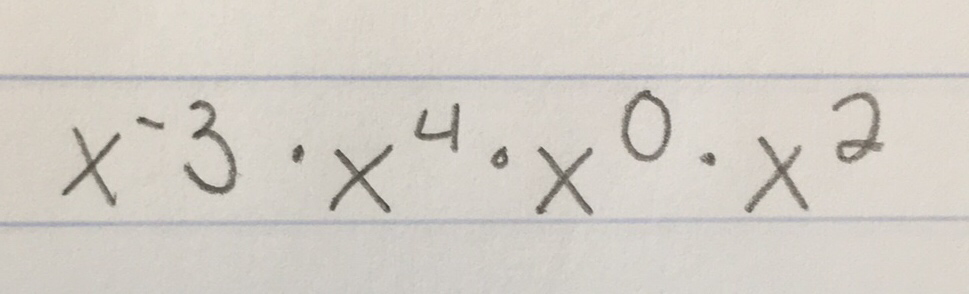 x⁻³ · x⁴ · x⁰ · x²